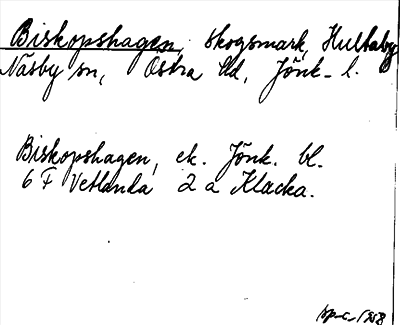 Biskopshagen, skogsmark, Hultaby,
Näsby sn, Östra hd, Jönk. l.
Biskopshagen, ek. Jönk. bl.
6 F Vetlanda 2 a Klacka.
1958